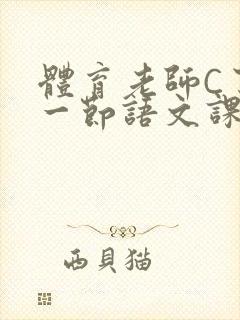 體育老師C了
一節語文課
西貝猫